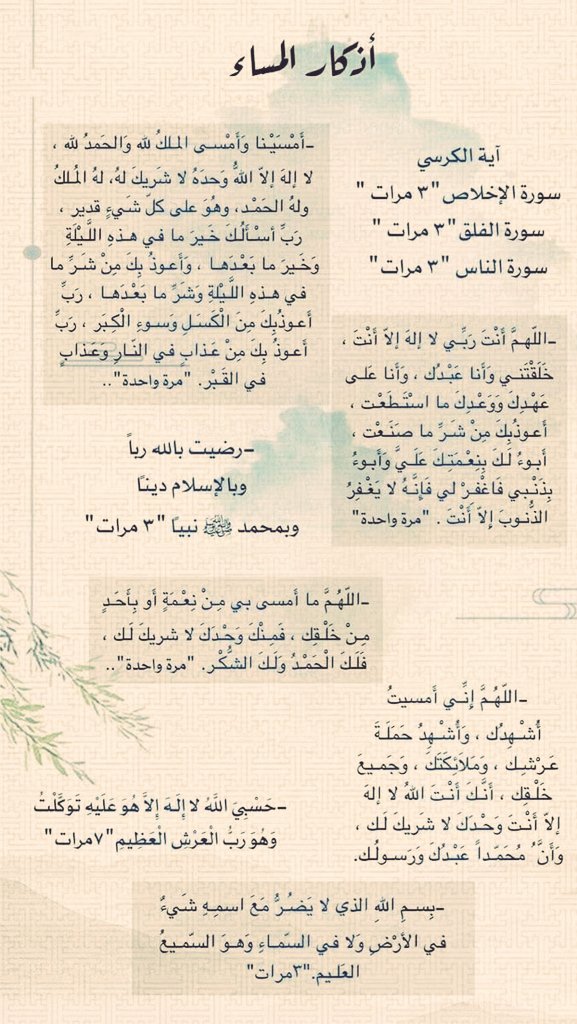 أذكار المساء
آية الكرسي
سورة الإخلاص "٣ مرات "
سورة الفلق "٣ مرات "
سورة الناس "٣ مرات"
-أَمْسَيْـنا وَأَمْسـى المـلكُ لله وَالحَمدُ لله ،
لا إلهَ إلاّ اللّهُ وَحدَهُ لا شَريكَ لهُ، لهُ المُـلكُ
ولهُ الحَمْـد، وهُوَ على كلّ شَيءٍ قدير ،
رَبِّ أسْـأَلُـكَ خَـيرَ ما في هـذهِ اللَّـيْلَةِ
وَخَـيرَ ما بَعْـدَهـا ، وَأَعـوذُ بِكَ مِنْ شَـرِّ ما
في هـذهِ اللَّـيْلةِ وَشَرِّ ما بَعْـدَهـا ، رَبِّ
أَعـوذُبِكَ مِنَ الْكَسَـلِ وَسـوءِ الْكِـبَر ، رَبِّ
أَعـوذُ بِكَ مِنْ عَـذابٍ في النّـارِ وَعَـذابٍ
في القَـبْر. "مرة واحدة"..
-اللّهـمَّ أَنْتَ رَبِّـي لا إلهَ إلاّ أَنْتَ ،
خَلَقْتَنـي وَأَنا عَبْـدُك ، وَأَنا عَلـى
عَهْـدِكَ وَوَعْـدِكَ ما اسْتَـطَعْت ،
أَعـوذُبِكَ مِنْ شَـرِّ ما صَنَـعْت ،
أَبـوءُ لَـكَ بِنِعْـمَتِـكَ عَلَـيَّ وَأَبـوءُ
بِذَنْـبي فَاغْفِـرْ لي فَإِنَّـهُ لا يَغْـفِرُ
الذُّنـوبَ إِلاّ أَنْتَ . "مرة واحدة"
-رضيت بالله رباً
وبالإسلام دينًا
وبمحمد ﷺ نبياً "٣ مرات "
-اللّهُـمَّ ما أَمسى بي مِـنْ نِعْـمَةٍ أَو بِأَحَـدٍ
مِـنْ خَلْـقِك ، فَمِـنْكَ وَحْـدَكَ لا شريكَ لَـك ،
فَلَـكَ الْحَمْـدُ وَلَـكَ الشُّكْـر. "مرة واحدة"..
-اللّهُـمَّ إِنِّـي أَمسيتُ
أُشْـهِدُك ، وَأُشْـهِدُ حَمَلَـةَ
عَـرْشِـك ، وَمَلَائِكَتَكَ ، وَجَمـيعَ
خَلْـقِك ، أَنَّـكَ أَنْـتَ اللهُ لا إلهَ
إلاّ أَنْـتَ وَحْـدَكَ لا شَريكَ لَـك ،
وَأَنَّ مُحَمّـداً عَبْـدُكَ وَرَسـولُـك.
-حَسْبِيَ اللَّهُ لا إِلَـهَ إِلاَّ هُوَ عَلَيْهِ تَوَكَّلْتُ
وَهُوَ رَبُّ الْعَرْشِ الْعَظِيمِ "٧مرات"
-بِسـمِ اللهِ الذي لا يَضُـرُّ مَعَ اسمِـهِ شَيءٌ
في الأرْضِ وَلا في السّمـاءِ وَهـوَ السّمـيعُ
العَلـيم."٣مرات"